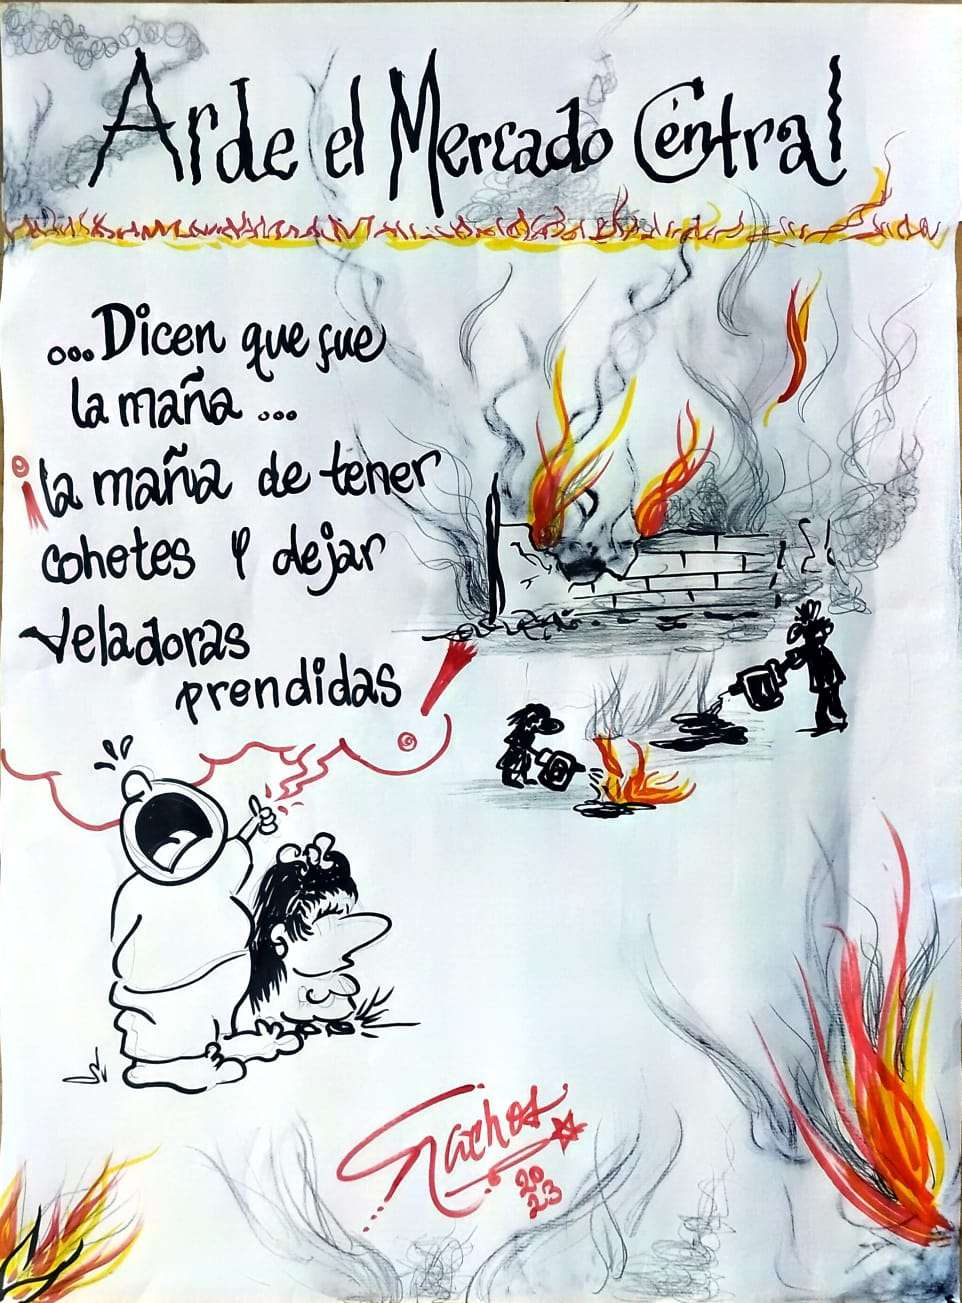 Arde el Mercado Central
...Dicen que fue
la maña...
¡la maña de tener
cohetes y dejar
veladoras
prendidas!
Nachos
2023